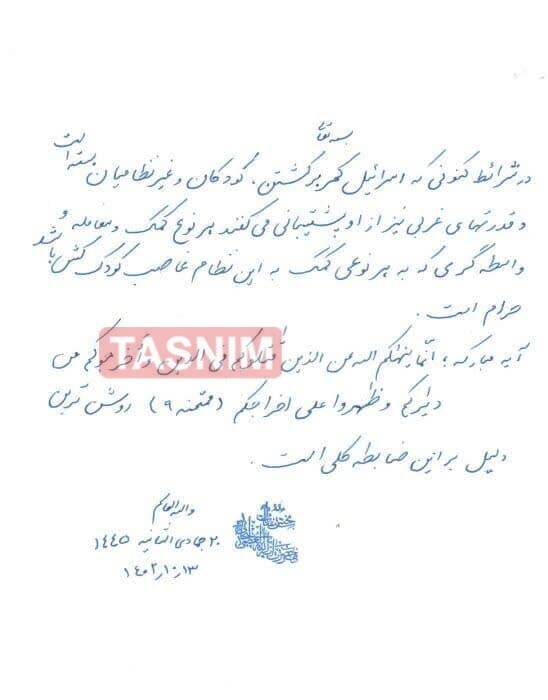 بسمه تعالی
در شرائط کنونی که اسرائیل کمر بر کشتن کودکان و غیر نظامیان بسته است
و قدرتهای غربی نیز از او پشتیبانی می کنند هر نوع کمک و معامله و
واسطه گری که به هر نوعی کمک به این نظام غاصب کودک کش باشد
حرام است.
TASNIM
آیه مبارکه؛ انّما ینهاکم الله من الذین قاتلوکم فی الدین و أخرجوکم من
دیارکم و ظهروا علی اخراجکم (ممتحنه ۹) روشن ترین
دلیل بر این ضابطه کلی است.
والله العالم
۲۰ جمادی الثانیه ۱۴۴۵
۱۴۰۲٫۱۰٫۱۳